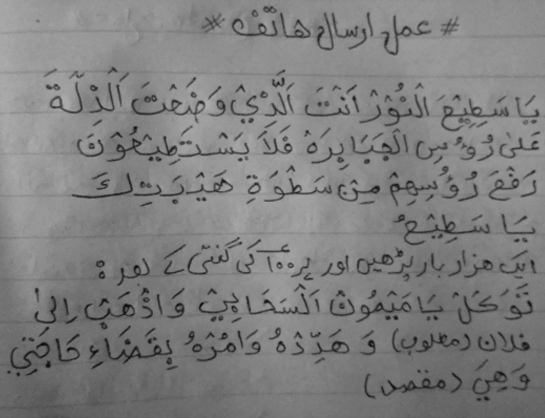 # عمل ارسال ھاتف #
يَا سَطِيْعَ الْنُوْرْ اَنْتَ اَلَّذِيْ وَضَعْتَ اَلْذِلَّةَ
عَلىٰ رُؤُسِ الْجَبَابِرَةْ فَلَا يَسْتَطِيْعُوْنَ
رَفْعَ رُؤُسِهِمْ مِنْ سَطْوَةِ هَيْبَتِكَ
يَا سَطِيْعُ
ایک ھزار بار پڑھیں اور ہر ۱۰۰ کی گنتی کے بعد :
تَوَكَلْ يَا مَيْمُوْنْ اَلْسَحَابِيْ وَاذْهَبْ اِلىٰ
فلان (مطلوب) وَ هَدِّدْهُ وَامُرْهُ بِقَضَاءِ حَاجَتِيْ
وَهِيَ (مقصد)